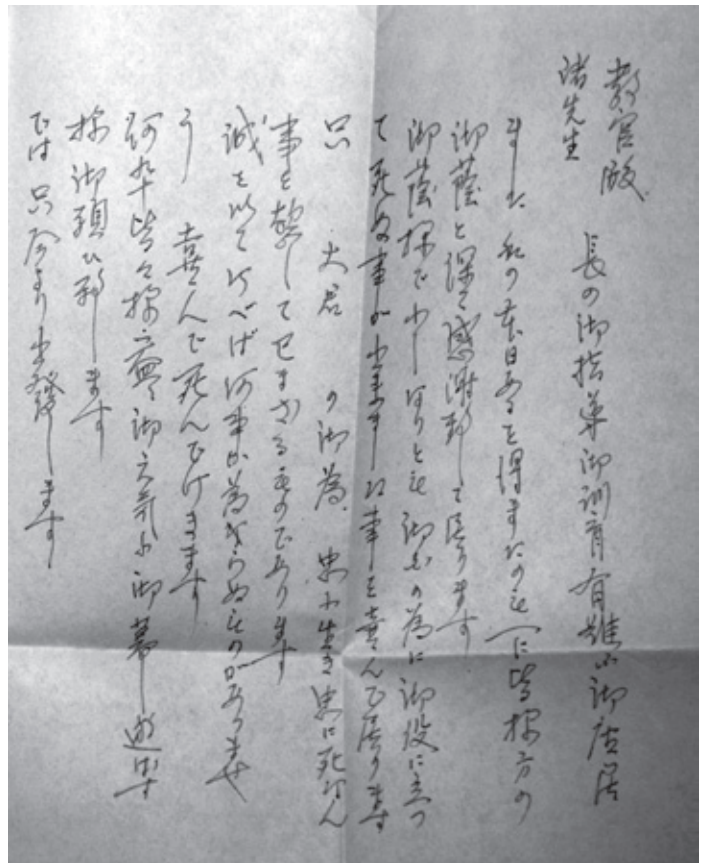 教官殿
諸先生
長の御指導御訓育有難小御座居
ました 私の本日あるを得ましたのも一に皆様方の
御蔭と深く感謝致して居ります
御蔭様で少しなりとも御国の為に御役に立つ
て死ぬ事が出来ました事を喜んで居ります
只 大君 の御為 忠に生き忠に死なん
事を誓して已まざるものであります
誠を以て行へば何事か為さらぬものがありませ
う 喜んで死んで行きます
何卒皆々様益々御元気に御暮し遊ばす
様御願ひ致します
では只今より出発します